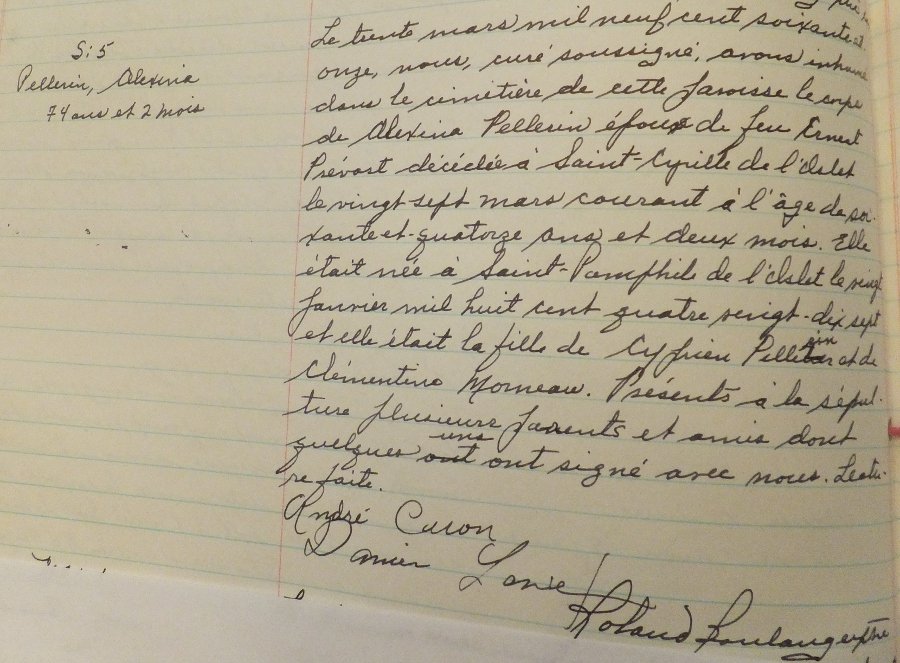 S:5
Pellerin, Alexina
74 ans et 2 mois
Le trente mars mil neuf cent soixante et
onze, nous, curé soussigné, avons inhumé
dans le cimetière de cette paroisse le corps
de Alexina Pellerin épouse de feu Ernest
Prévost décédée à Saint-Cyrille de l'Islet
le vingt sept mars courant à l'âge de soi-
xante-et-quatorze ans et deux mois. Elle
était née à Saint-Pamphile de l'Islet le vingt
janvier mil huit cent quatre vingt-dix sept
et elle était la fille de Cyprien Pellerin et de
Clémentine Morneau. Présents à la sépul-
ture plusieurs parents et amis dont
quelques uns ont signé avec nous. Lectu-
re faite.
André Caron
Damien
Roland Boulanger ptre